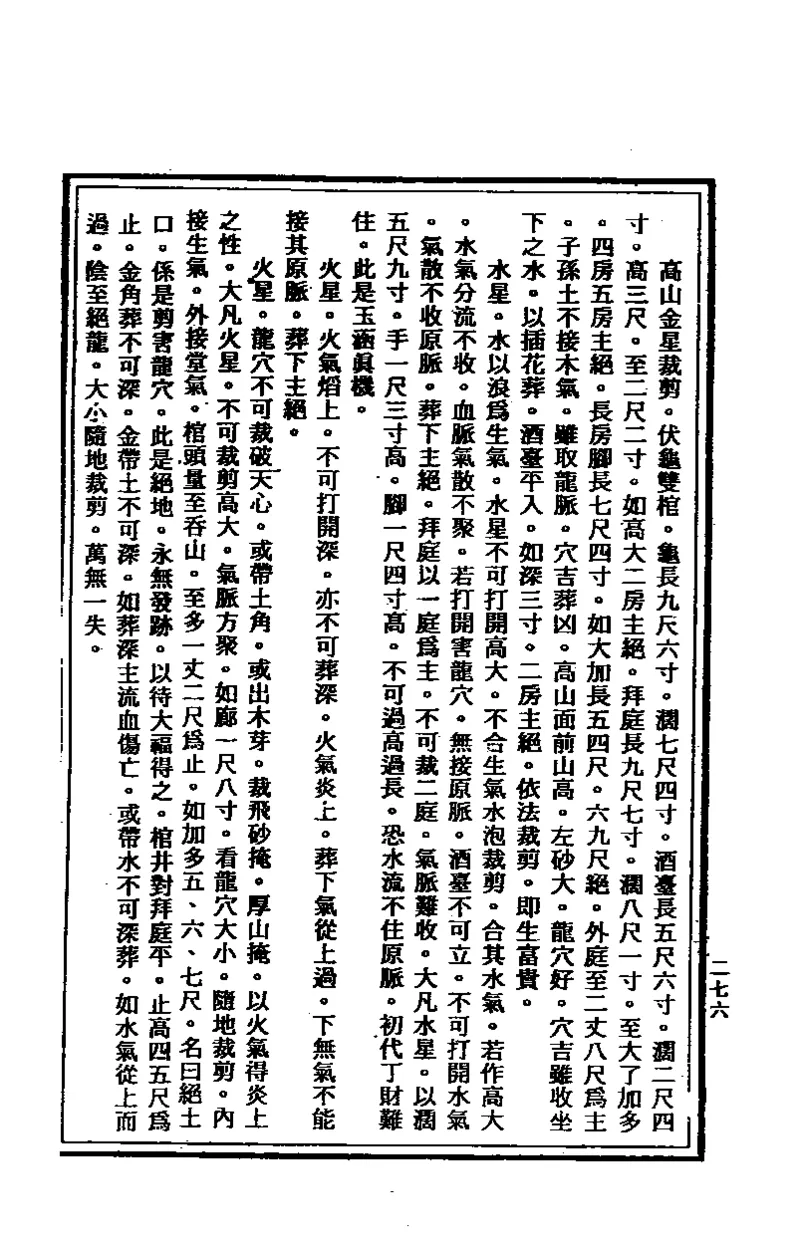 高山金星裁剪。伏龜雙棺。龜長九尺六寸。濶七尺四寸。酒臺長五尺六寸。濶二尺四
寸。高三尺。至二尺二寸。如高大二房主絕。拜庭長九尺七寸。濶八尺一寸。至大了加多
。四房五房主絕。長房腳長七尺四寸。如大加長五四尺。六九尺絕。外庭至二丈八尺爲主
。子孫土不接木氣。雖取龍脈。穴吉葬凶。高山面前山高。左砂大。龍穴好。穴吉雖收坐
下之水。以插花葬。酒臺平入。如深三寸。二房主絕。依法裁剪。即生富貴。
水星。水以浪爲生氣。水星不可打開高大。不合生氣水泡裁剪。合其水氣。若作高大
。水氣分流不收。血脈氣散不聚。若打開害龍穴。無接原脈。酒臺不可立。不可打開水氣
。氣散不收原脈。葬下主絕。拜庭以一庭爲主。不可裁二庭。氣脈難收。大凡水星。以濶
五尺九寸。手一尺三寸高。腳一尺四寸高。不可過高過長。恐水流不住原脈。初代丁財難
住。此是玉涵眞機。
火星。火氣熖上。不可打開深。亦不可葬深。火氣炎上。葬下氣從上過。下無氣不能
接其原脈。葬下主絕。
火星。龍穴不可裁破天心。或帶土角。或出木芽。裁飛砂掩。厚山掩。以火氣得炎上
之性。大凡火星。不可裁剪高大。氣脈方聚。如廊一尺八寸。看龍穴大小。隨地裁剪。內
接生氣。外接堂氣。棺頭量至吞山。至多一丈二尺爲止。如加多五、六、七尺。名曰絕土
口。係是剪害龍穴。此是絕地。永無發跡。以待大福得之。棺井對拜庭平。止高四五尺爲
止。金角葬不可深。金帶土不可深。如葬深主流血傷亡。或帶水不可深葬。如水氣從上而
過。陰至絕龍。大小隨地裁剪。萬無一失。
二七六